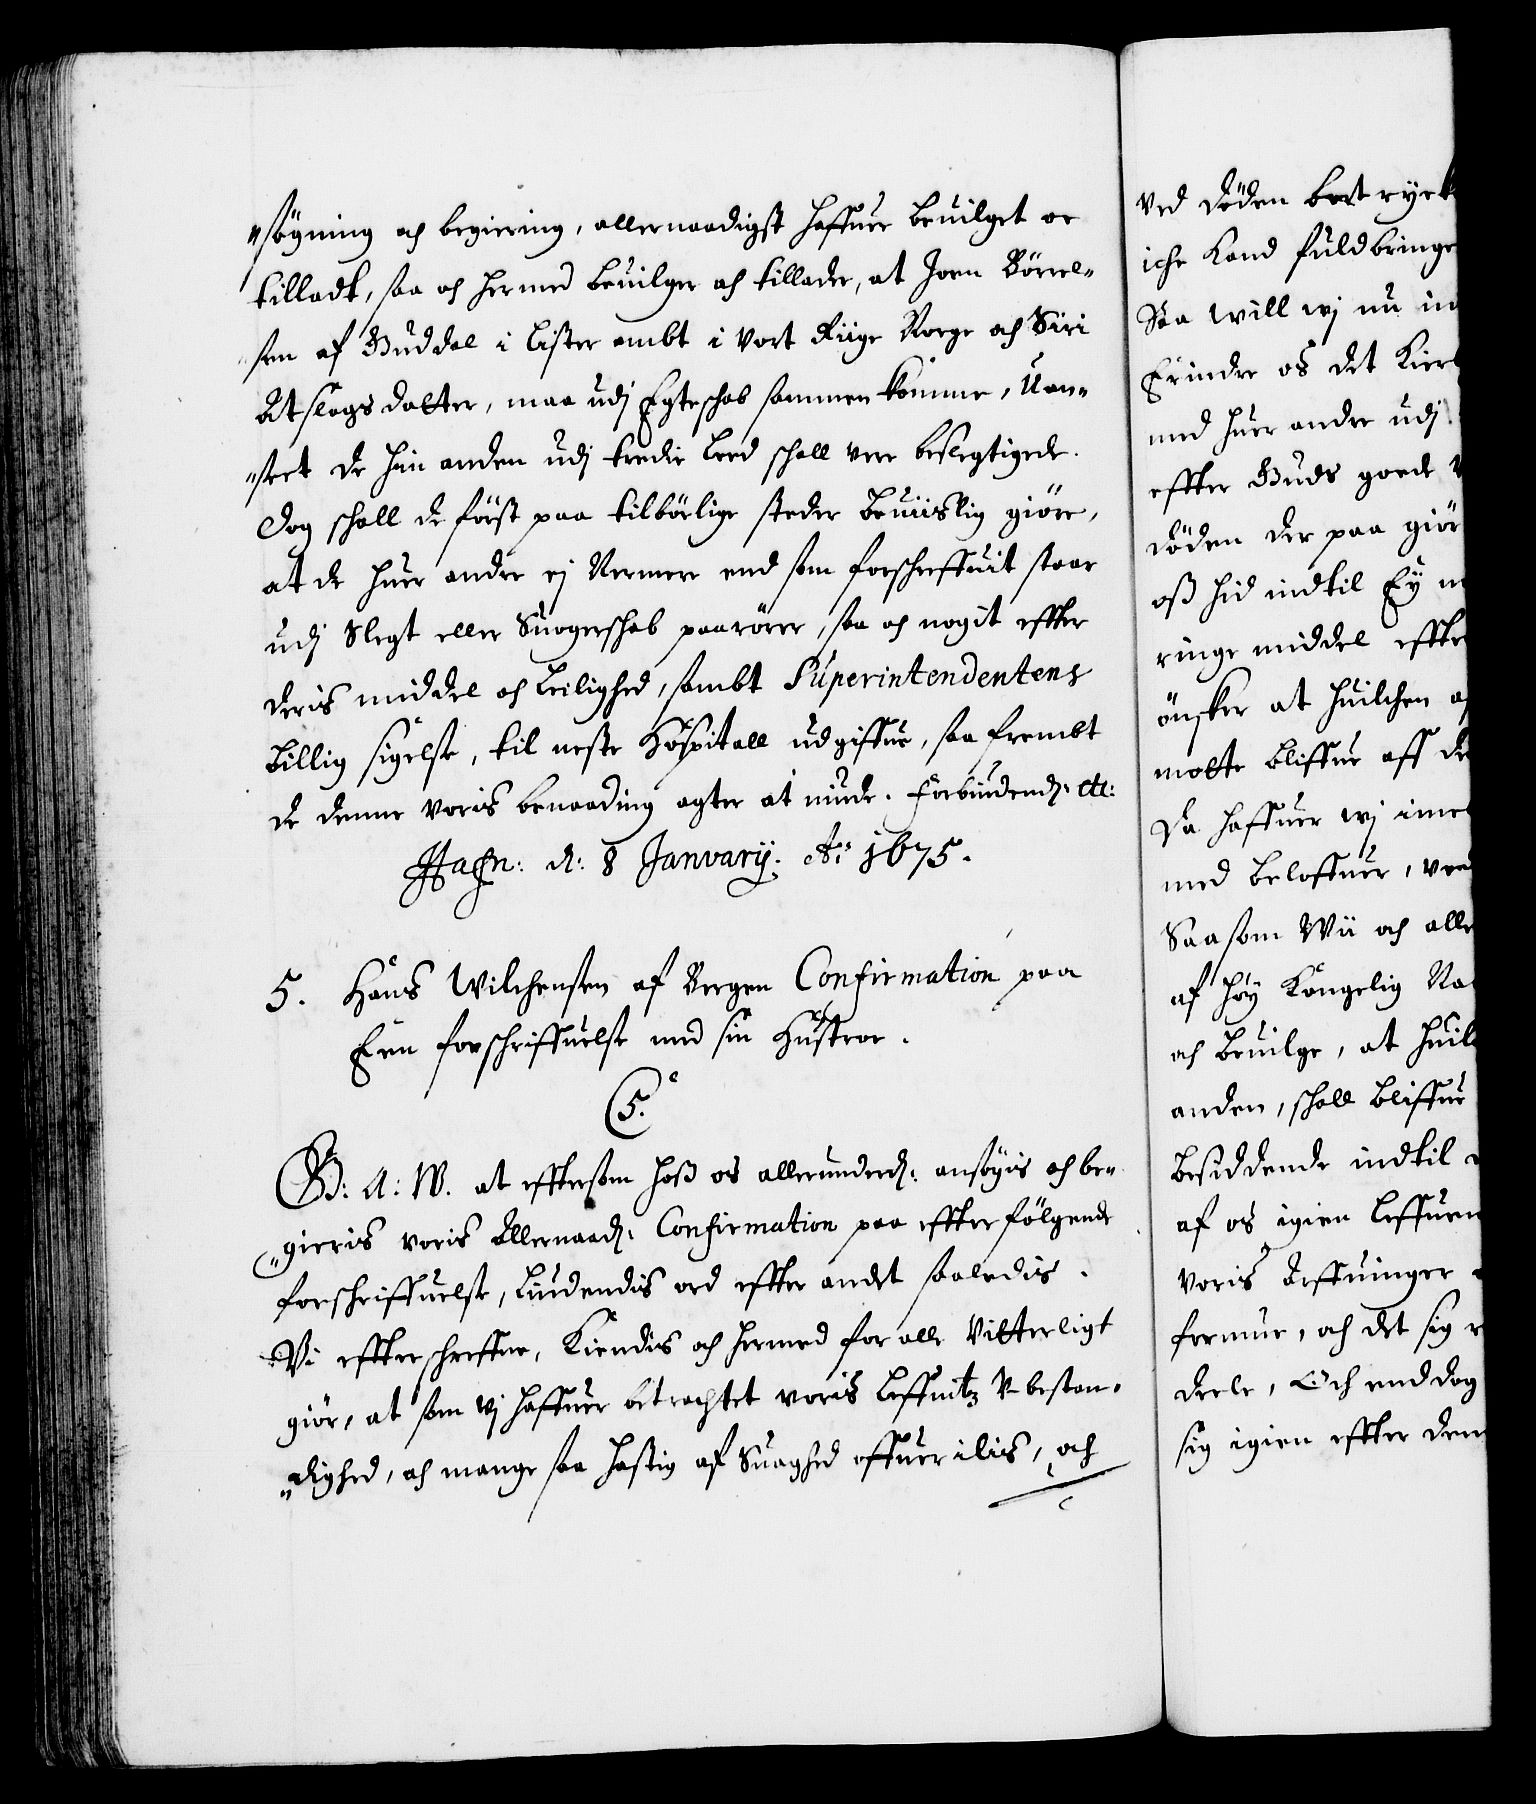 "søgning och begiering, allernaadigst haffuer beuilget oc
tilladt, saa och hermed beuilger och tillader, at Joen Börrel-
sen af Guddal i Lister ambt i vort Riige Norge och Siri
Atslags datter, maa udj Egteschab sammenkomme, Uan-
"seet de hin anden udj tredie Leed schall vere beslegtigede.
Dog schall de först paa tilbörlige steder beuiislig giöre,
at de huer andre ej Nermere end som forschreffuit staar
udj Slegt eller Suogerschab paarörer, saa och nogit effter
deris middel och Leilighed, sambt Superintendentens
billig sigelse, til neste Hospitall udgiffue, saa frembt
de denne voris benaading agter at niude. Forbindend: etc:
Hafn: d: 8 Januarij: Ao: 1675.
5. Hans Wilchensen af Bergen Confirmation paa
Een forschriffuelse med sin Hustroe.
5.
G: A: W. at efftersom hoß os allerunderd: ansögis och be-
"gieris voris Allernaad: Confirmation paa effterfölgende
forschriffuelse, Liudendis ord effter andet saaledis.
Vi effterschreffne, Kiendis och hermed for alle Vitterligt
giör, at som vj haffuer betrachtet voris Leffnitz V-bestan-
"dighed, och mange saa hastig af Suaghed offuerilis, och
Ved döden bort ryck
iche kand fuldbringe
Saa will wj nu in
Erindre os det Kier
med huer andre udj
effter Guds goede
döden der paa giör
oß hid indtil Ey
ringe middel effte
önsker at huilchen af
motte bliffue aff de
Da haffuer wj ime
med beloffuer, ved
Saasom Wii och alle
af höy Kongelig Na
och beuilge, at huil
anden, schall bliffue
besiddende indtil
af os igien Leffuen
voris Arffuinger
fermue, och det sig
deele, Och end dog
sig igien effter den